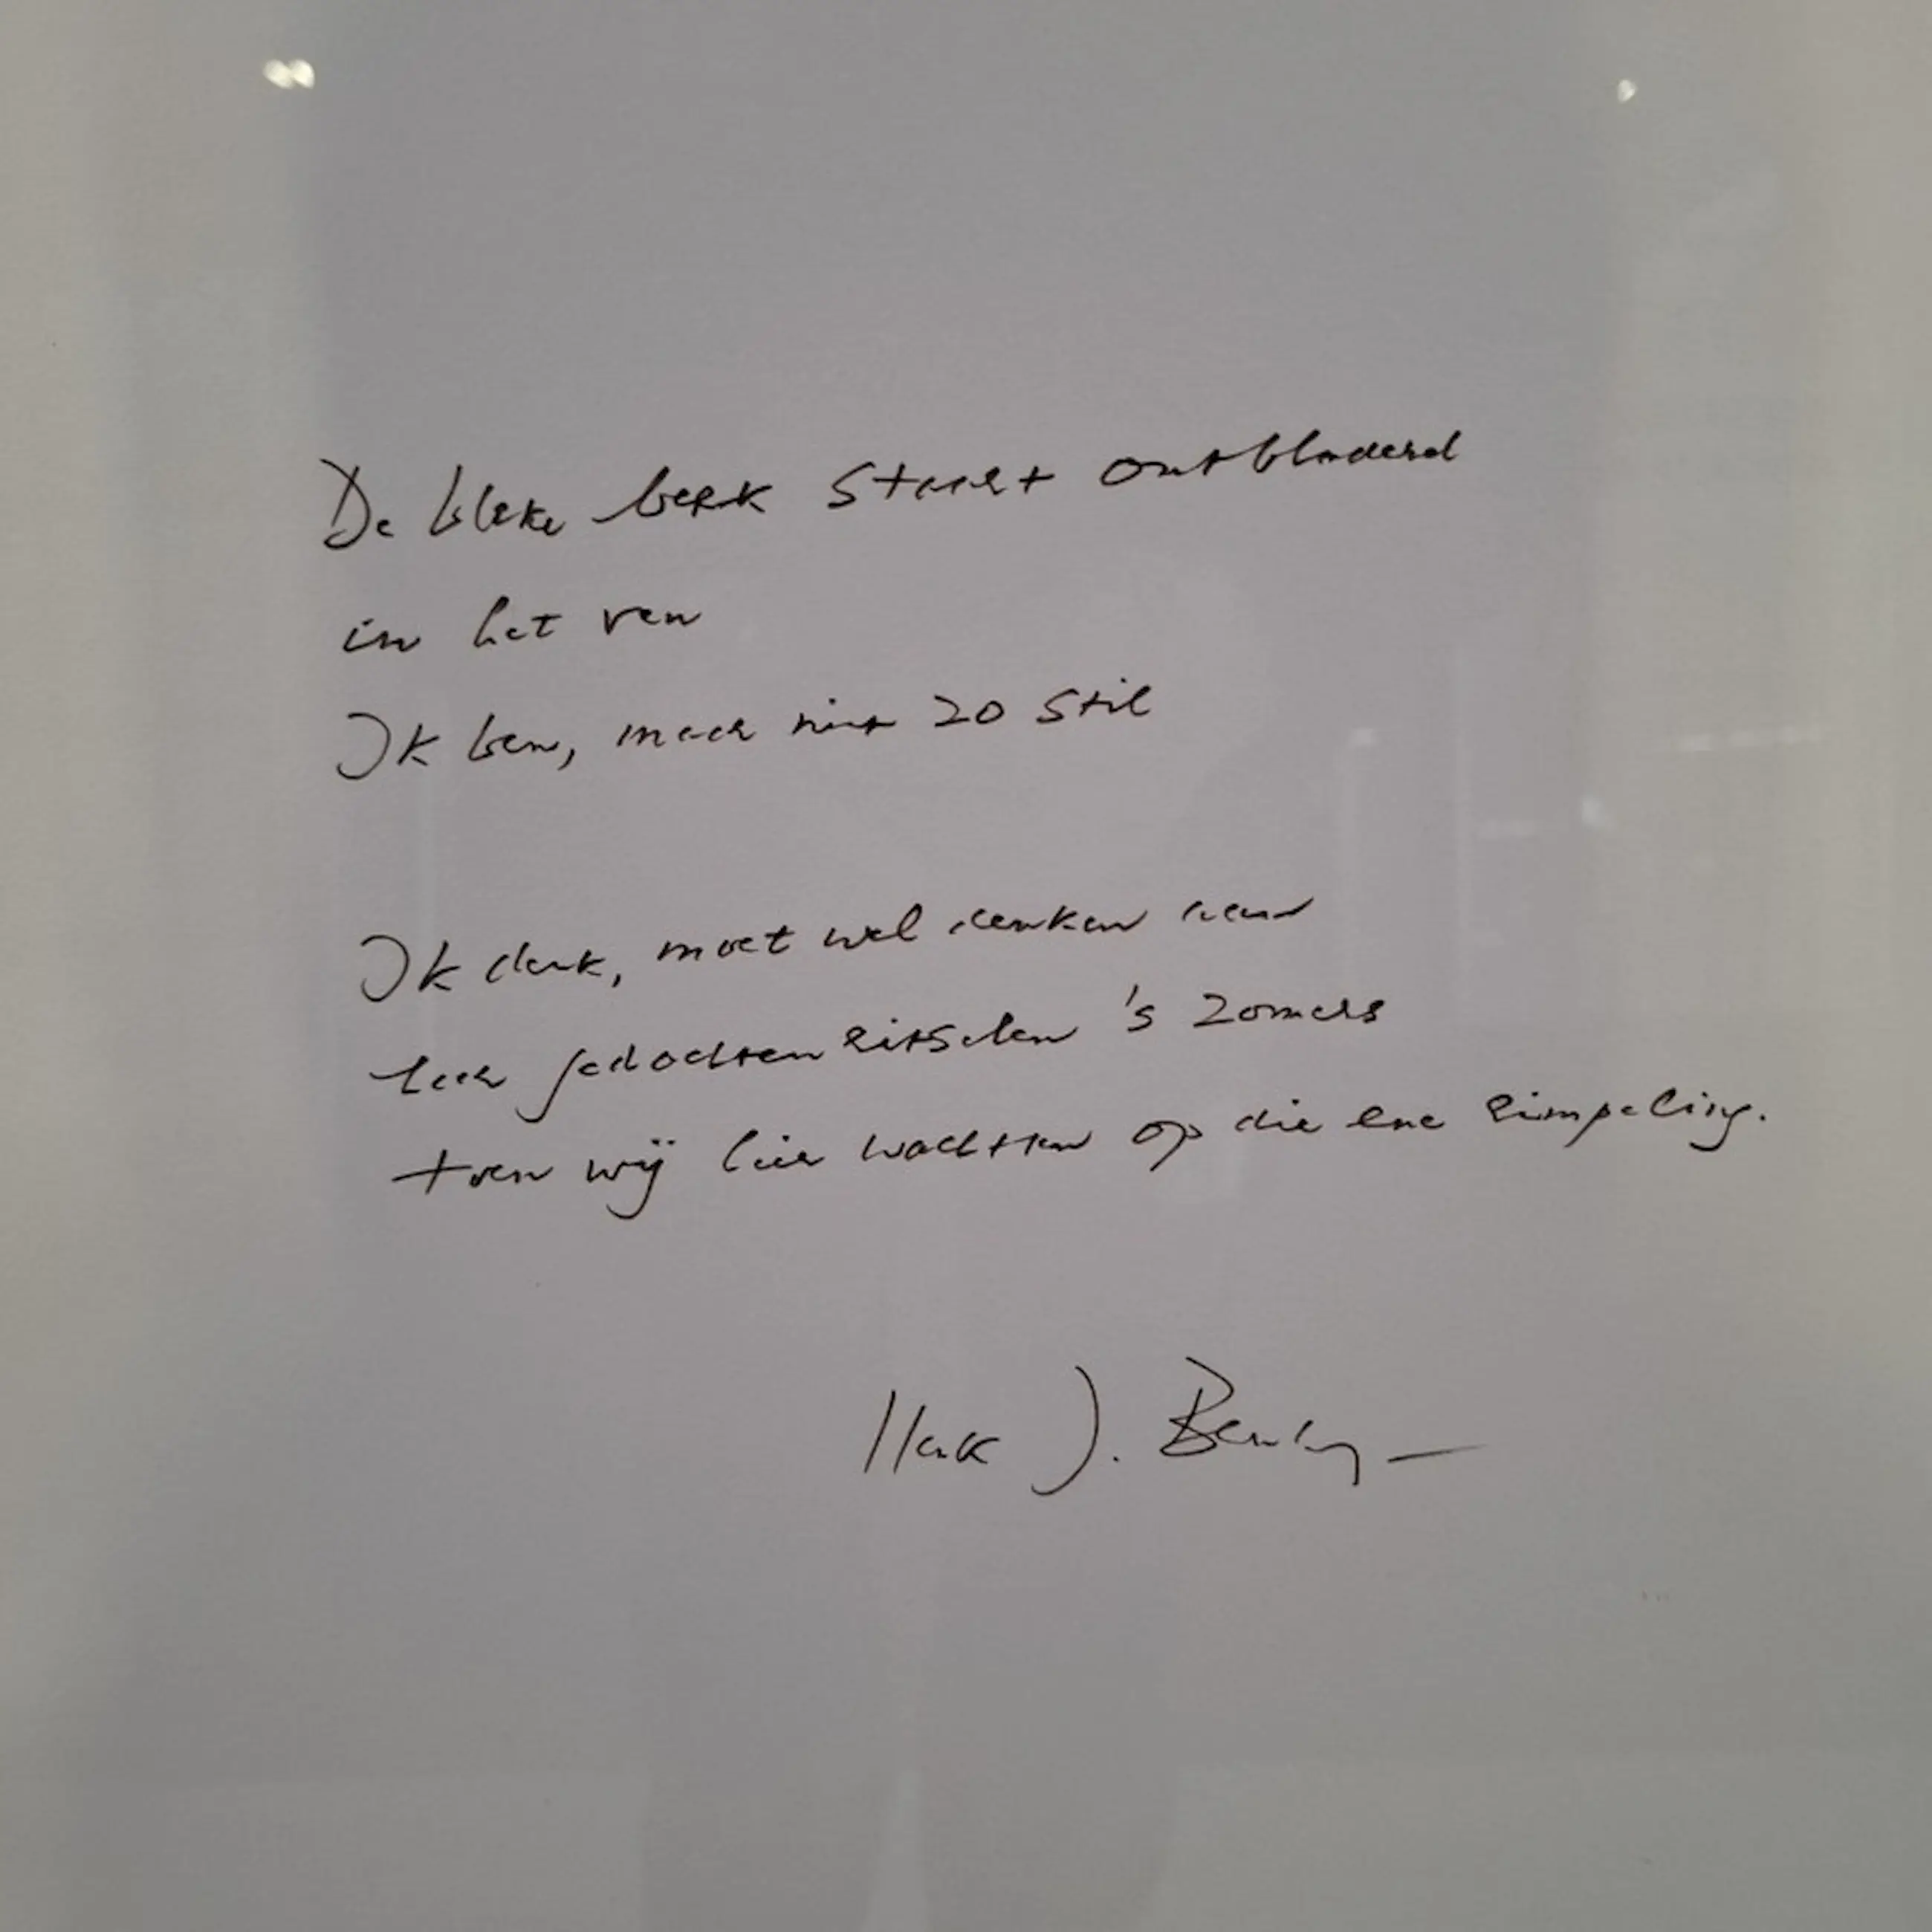 De bleke berk staart ontbladerd
in het ven
Ik ben, maar niet zo stil
Ik denk, moet wel denken aan
haar gedachten ritselen 's zomers
toen wij hier wachtten op die ene rimpeling.
Henk J.